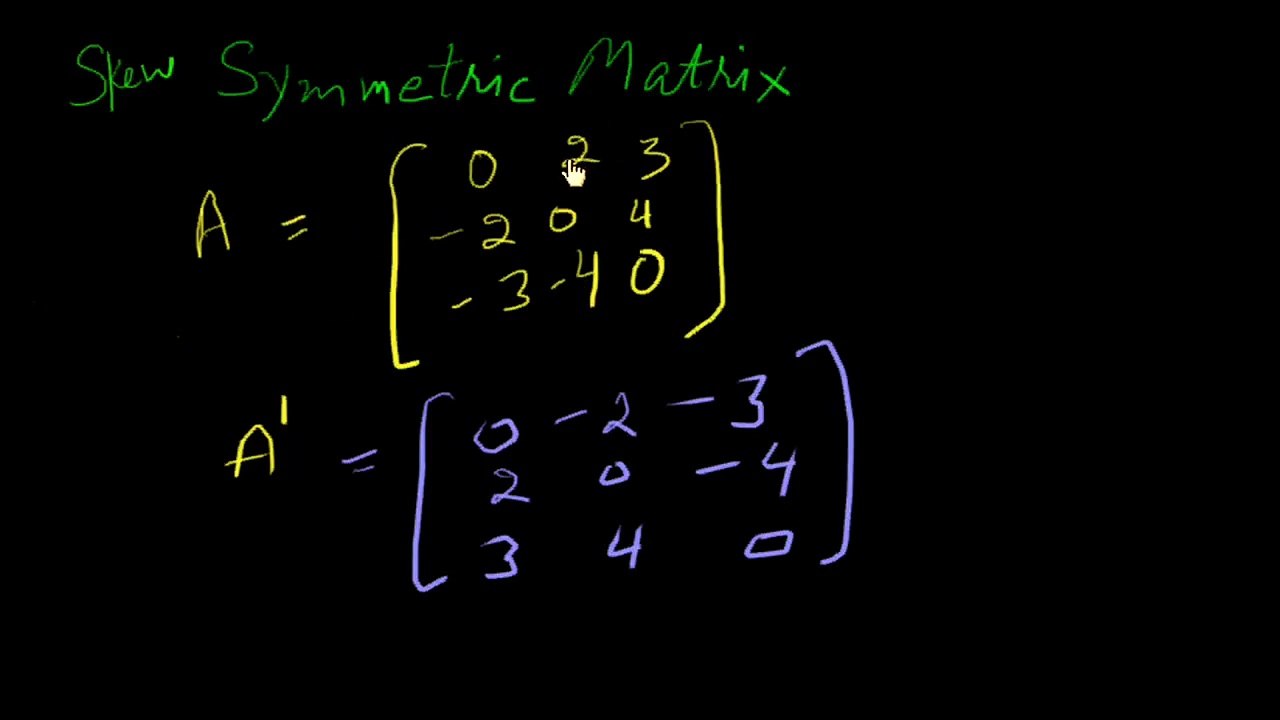 Skew Symmetric Matrix
0 2 3
A = -2 0 4
-3 -4 0
0 -2 -3
A' = 2 0 -4
3 4 0